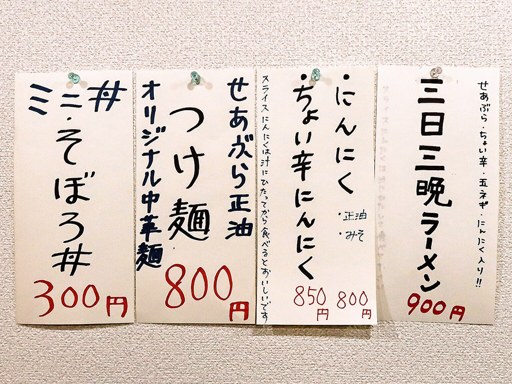 せあぶら・ちょい辛・五ネギ・にんにく入り!!
三日三晩ラーメン
900円
・にんにく
・正油
・みそ
800円
・ちょい辛にんにく
850円
スライスにんにくは汁にひたってから食べるとおいしいです
せあぶら正油
つけ麺
オリジナル中華麺
800円
ミニ・そぼろ丼
300円